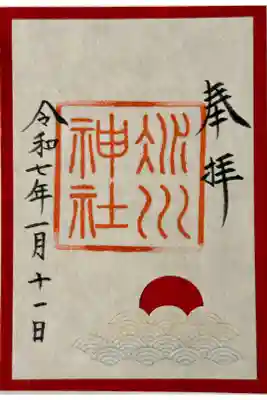 奉拝
氷川
神社
令和七年一月十一日